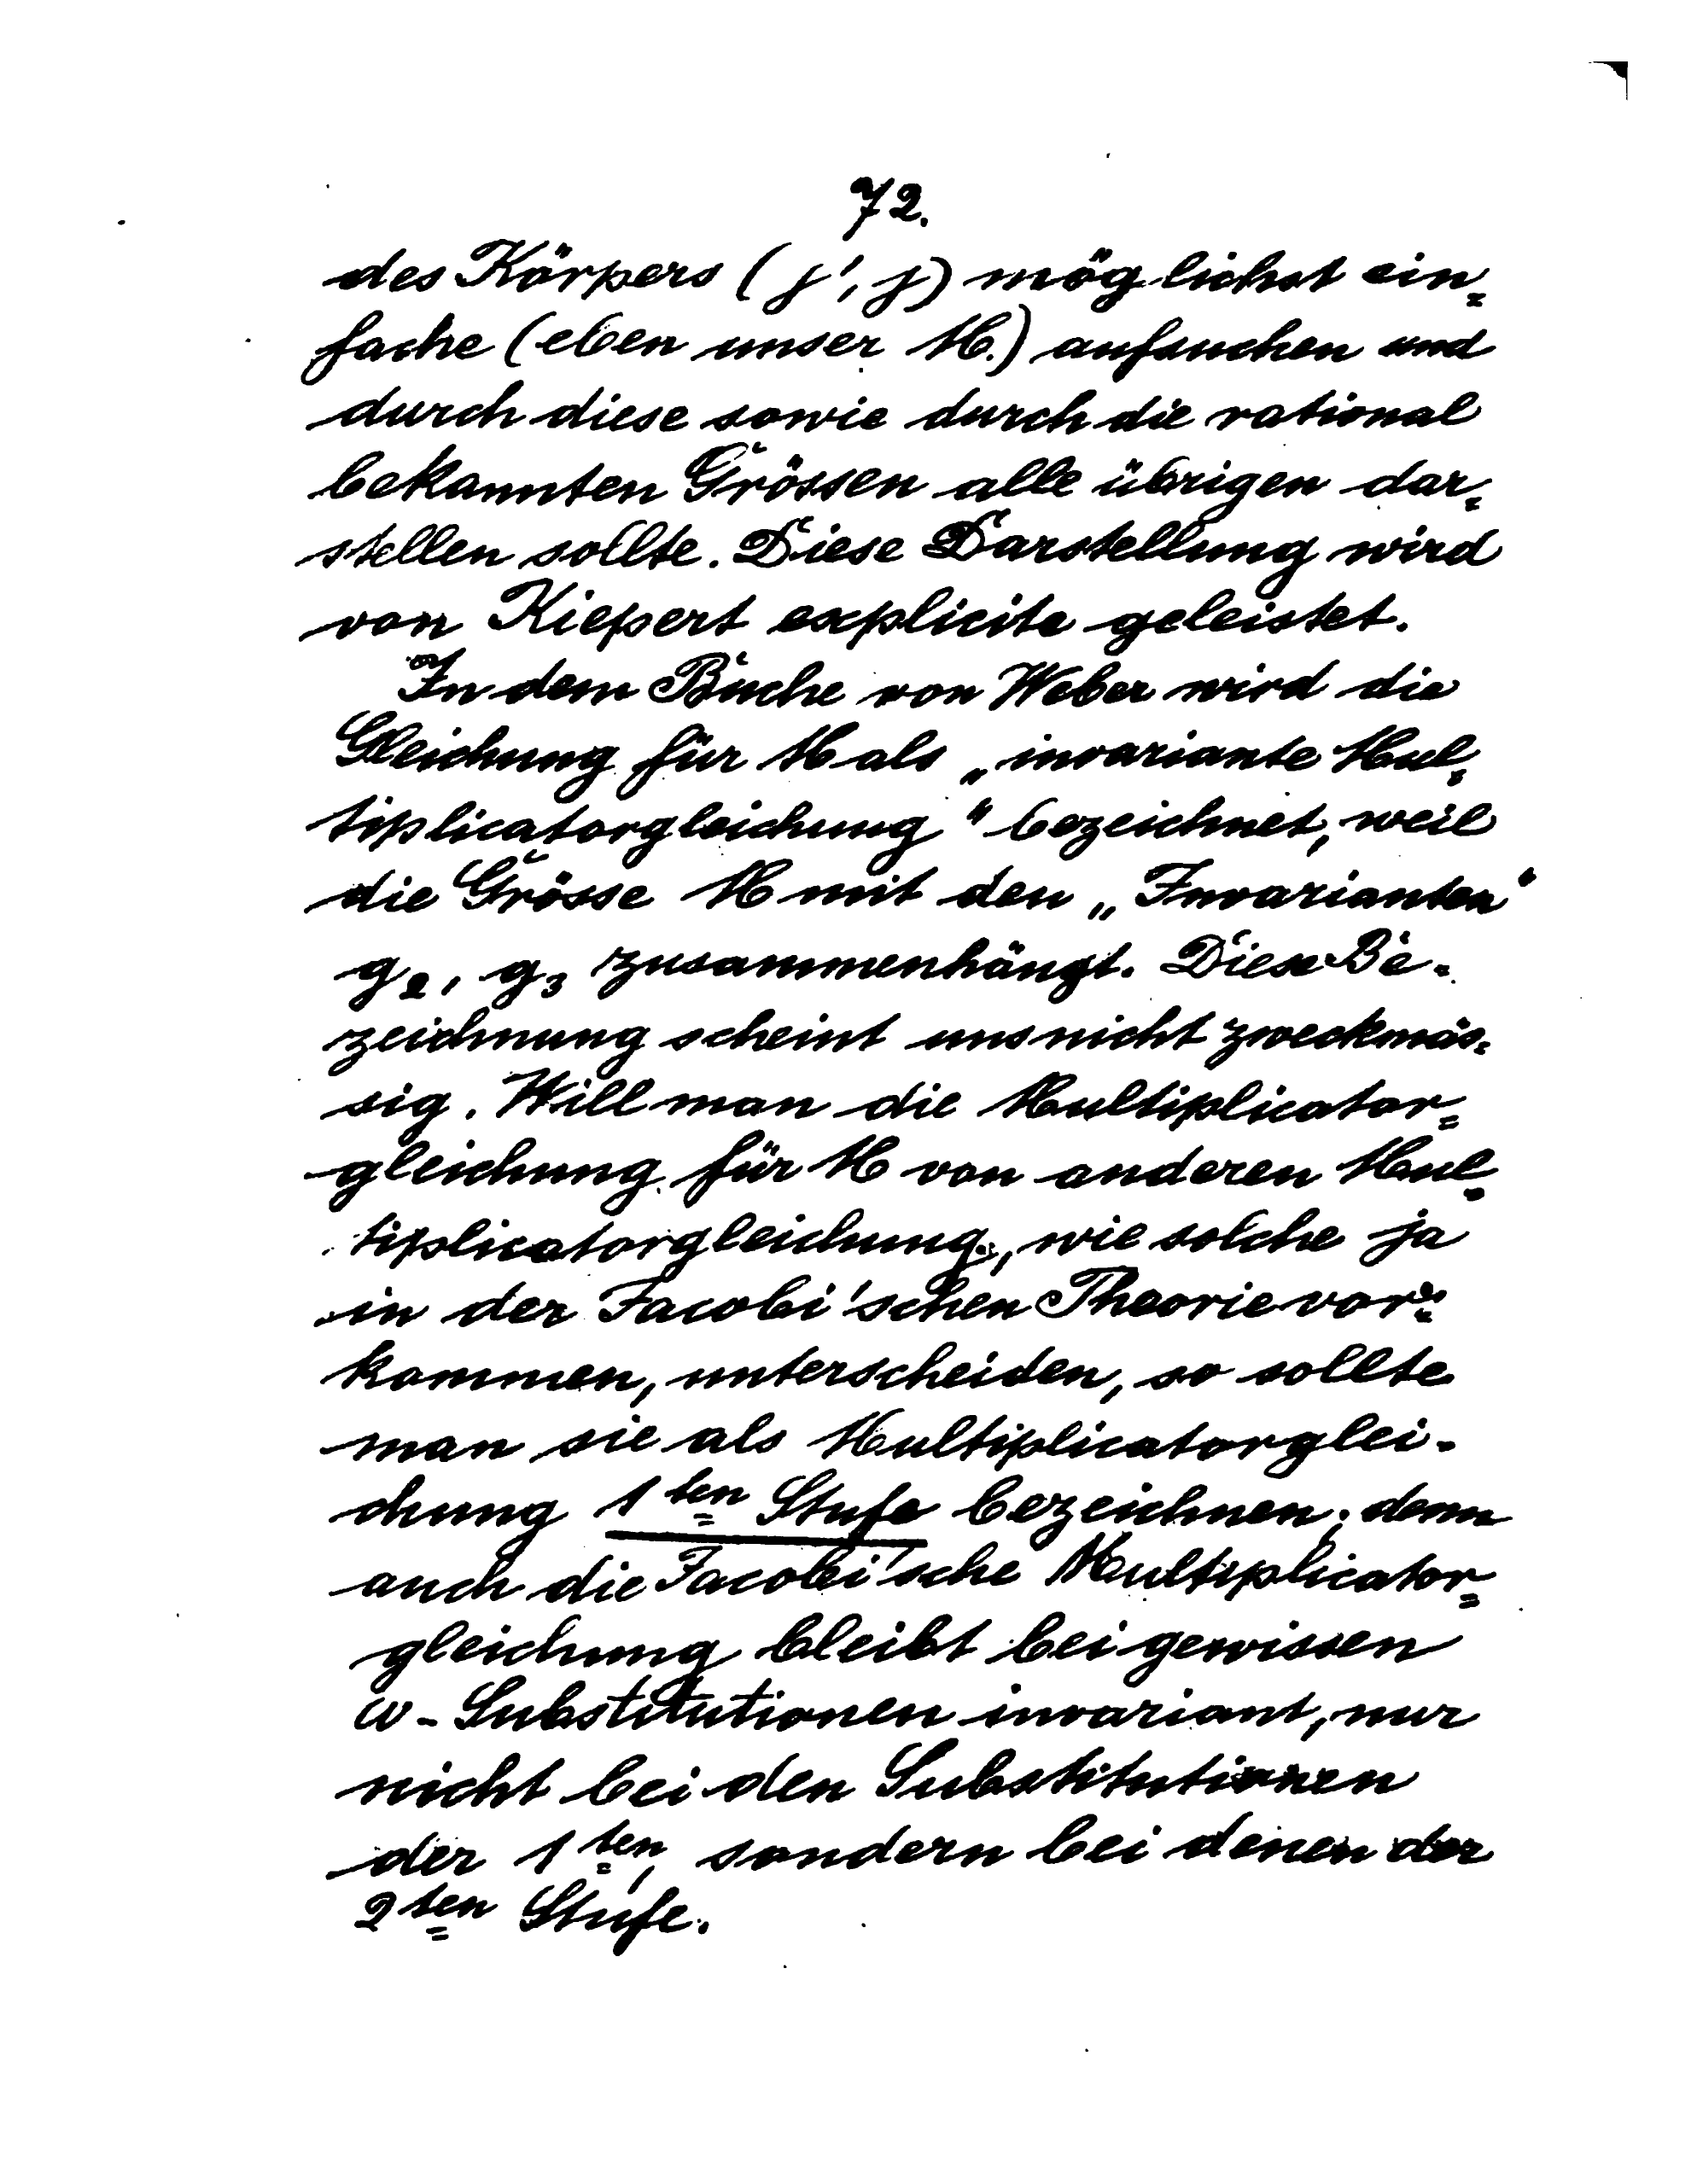 72.
des Körpers (j', j) möglichst ein=
fache (eben unser M.) aufsuchen und
durch diese sowie durch die rational
bekannten Grössen alle übrigen dar=
stellen sollte. Diese Darstellung wird
von Kiepert explicite geleistet.
In dem Buche von Weber wird die
Gleichung für M als „invariante Mul=
tiplicatorgleichung" bezeichnet, weil
die Grösse M mit den „Invarianten"
g₂, g₃ zusammenhängt. Diese Be-
zeichnung scheint uns nicht zweckmäs=
sig. Will man die Multiplicator=
gleichung für M von anderen Mul=
tiplicatorgleichung., wie solche ja
in der Jacobi'schen Theorie vor=
kommen, unterscheiden, so sollte
man sie als Multiplicatorglei-
chung 1ten Stufe bezeichnen; denn
auch die Jacobi'sche Multiplicator=
gleichung bleibt bei gewissen
ω-Substitutionen invariant, nur
nicht bei den Substitutionen
der 1ten, sondern bei denen der
2ten Stufe.